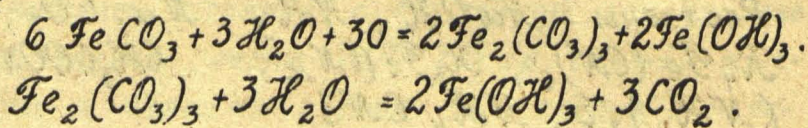 6 FeCO₃ + 3H₂O + 3O = 2Fe₂(CO₃)₃ + 2Fe(OH)₃.
Fe₂(CO₃)₃ + 3H₂O = 2Fe(OH)₃ + 3CO₂.